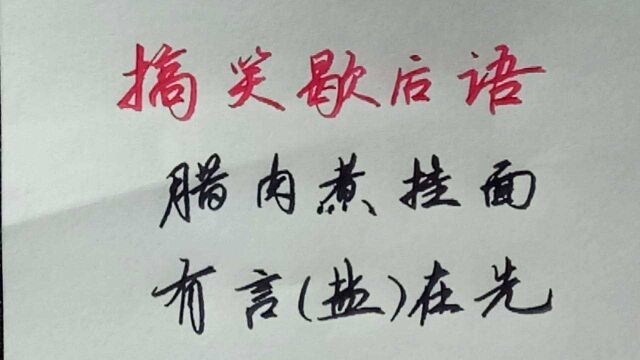 搞笑歇后语
腊肉煮挂面
有言(盐)在先